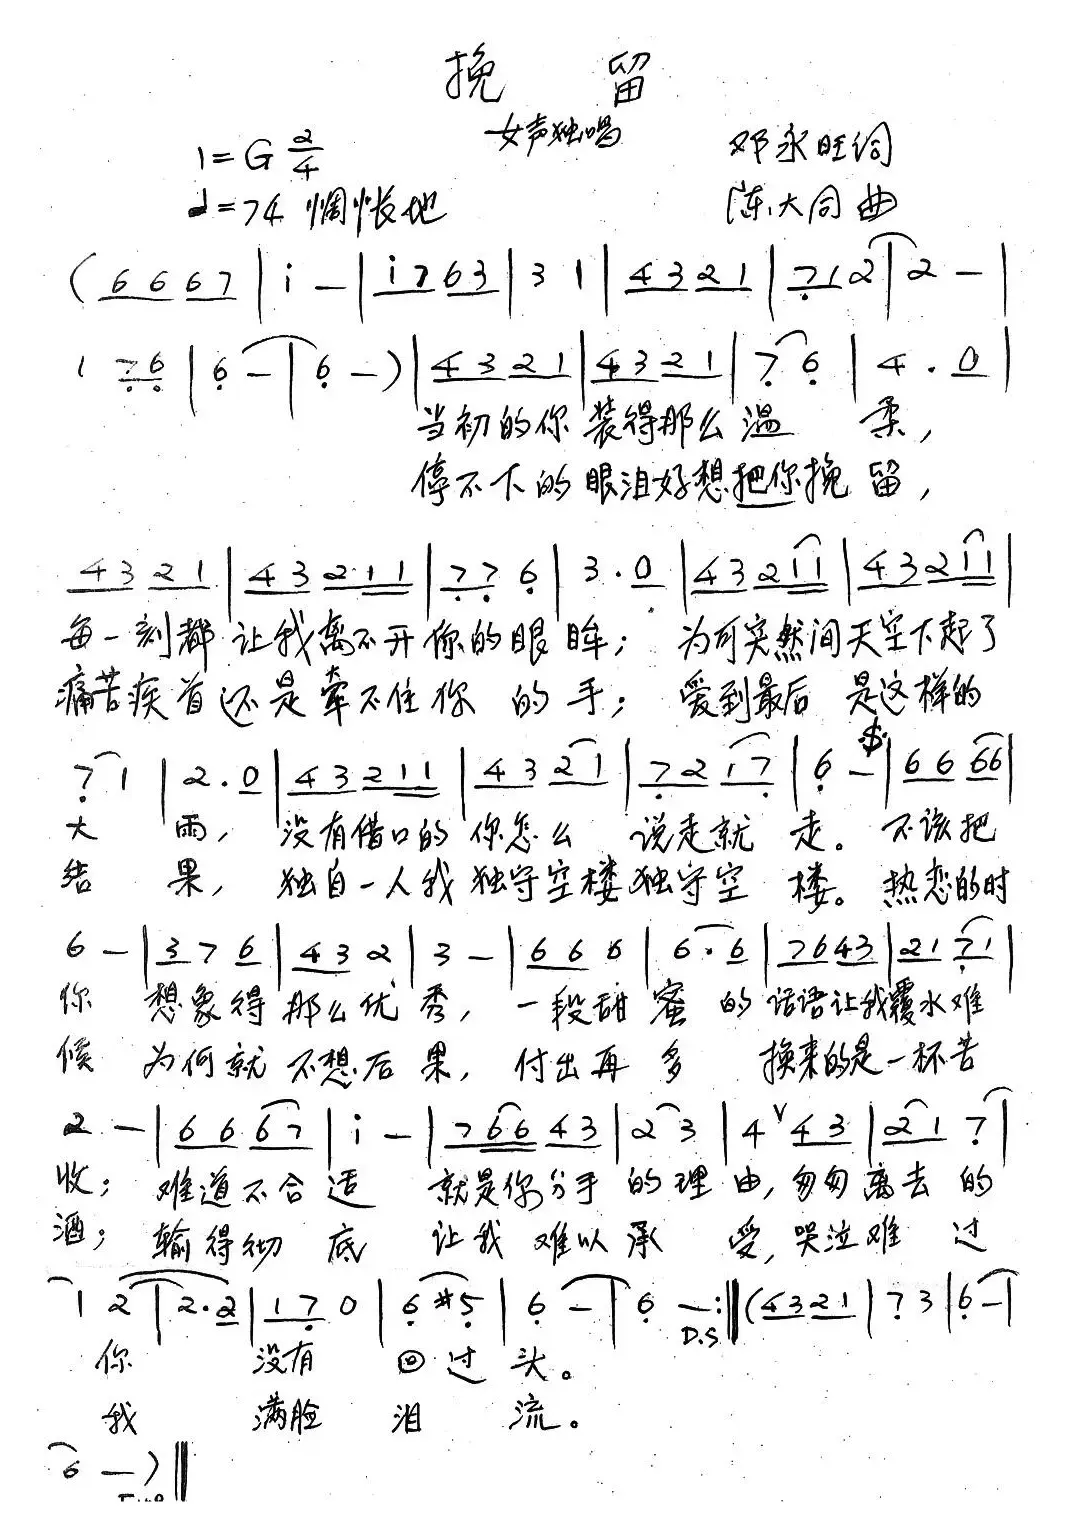 挽 留
女声独唱
1=G 2/4 邓永旺词
♩=74 惆怅地 陈大同曲
(6 6 6 7 | i — | i 7 6 3 | 3 1 | 4 3 2 1 | 7 1 2 | 2 — |
1 7 6 | 6 — | 6 — ) | 4 3 2 1 | 4 3 2 1 | 7 6 | 4 . 0 |
当初的你 装得那么 温 柔，
停不下的 眼泪好想把你挽 留，
4 3 2 1 | 4 3 2 1 1 | 7 7 6 | 3 . 0 | 4 3 2 1 1 | 4 3 2 1 1 |
每一刻都 让我离不开 你的眼 眸； 为何突然间 天空下起了
痛苦疾首 还是牵不住 你 的 手； 爱到最后 是这样的
7 1 | 2 . 0 | 4 3 2 1 1 | 4 3 2 1 | 7 2 1 7 | 6 — | 6 6 6 6 |
大 雨， 没有借口的 你怎么 说走就 走。 不该把
结 果， 独自一人我 独守空楼 独守空 楼。 热恋的时
6 — | 3 7 6 | 4 3 2 | 3 — | 6 6 6 | 6 . 6 | 7 6 4 3 | 2 1 7 1 |
你 想象得 那么优 秀， 一段甜 蜜 的 话语让我覆水难
候 为何就 不想后 果， 付出再 多 换来的是一杯苦
2 — | 6 6 6 7 | i — | 7 6 6 4 3 | 2 3 | 4 ∨ 4 3 | 2 1 7 |
收； 难道不合 适 就是你分手 的 理 由，匆匆 离去 的
酒； 输得彻 底 让我 难以 承 受，哭泣难 过
1 2 | 2 . 2 | 1 7 0 | 6 #5 | 6 — | 6 — :‖ (4 3 2 1 | 7 3 | 6 — |
D.S
你 没有 回 过 头。
我 满脸 泪 流。
6 — ) ‖